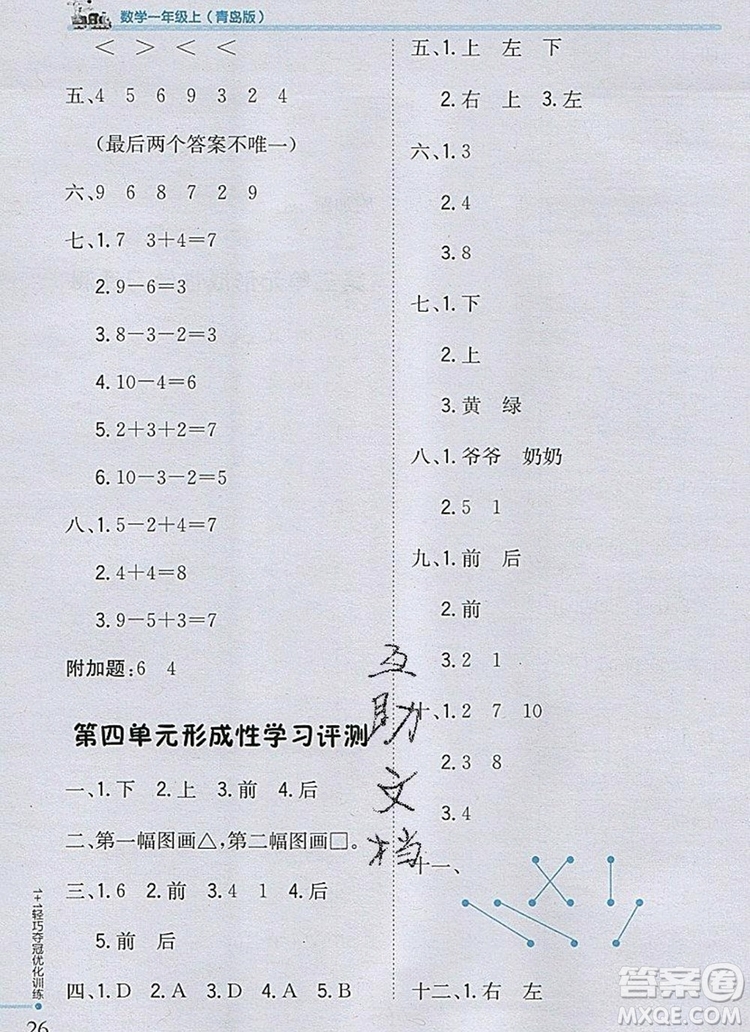 数学一年级上(青岛版)
< > < < <
五、4 5 6 9 3 2 4
(最后两个答案不唯一)
六、9 6 8 7 2 9
七、1.7 3+4=7
2.9-6=3
3.8-3-2=3
4.10-4=6
5.2+3+2=7
6.10-3-2=5
八、1.5-2+4=7
2.4+4=8
3.9-5+3=7
附加题:6 4
第四单元形成性学习评测
一、1.下 2.上 3.前 4.后
二、第一幅图画△,第二幅图画□。
三、1.6 2.前 3.4 1 4.后
5.前 后
四、1.D 2.A 3.A 4.D 5.B
五、1.上 左 下
2.右 上 3.左
六、1.3
2.4
3.8
七、1.下
2.上
3.黄 绿
八、1.爷爷 奶奶
2.5 1
九、1.前 后
2.前
3.2 1
十、1.2 7 10
2.3 8
3.4
十一、
十二、1.右 左
互助文档
1+1轻巧夺冠优化训练
26
答案圈
MXQE.COM